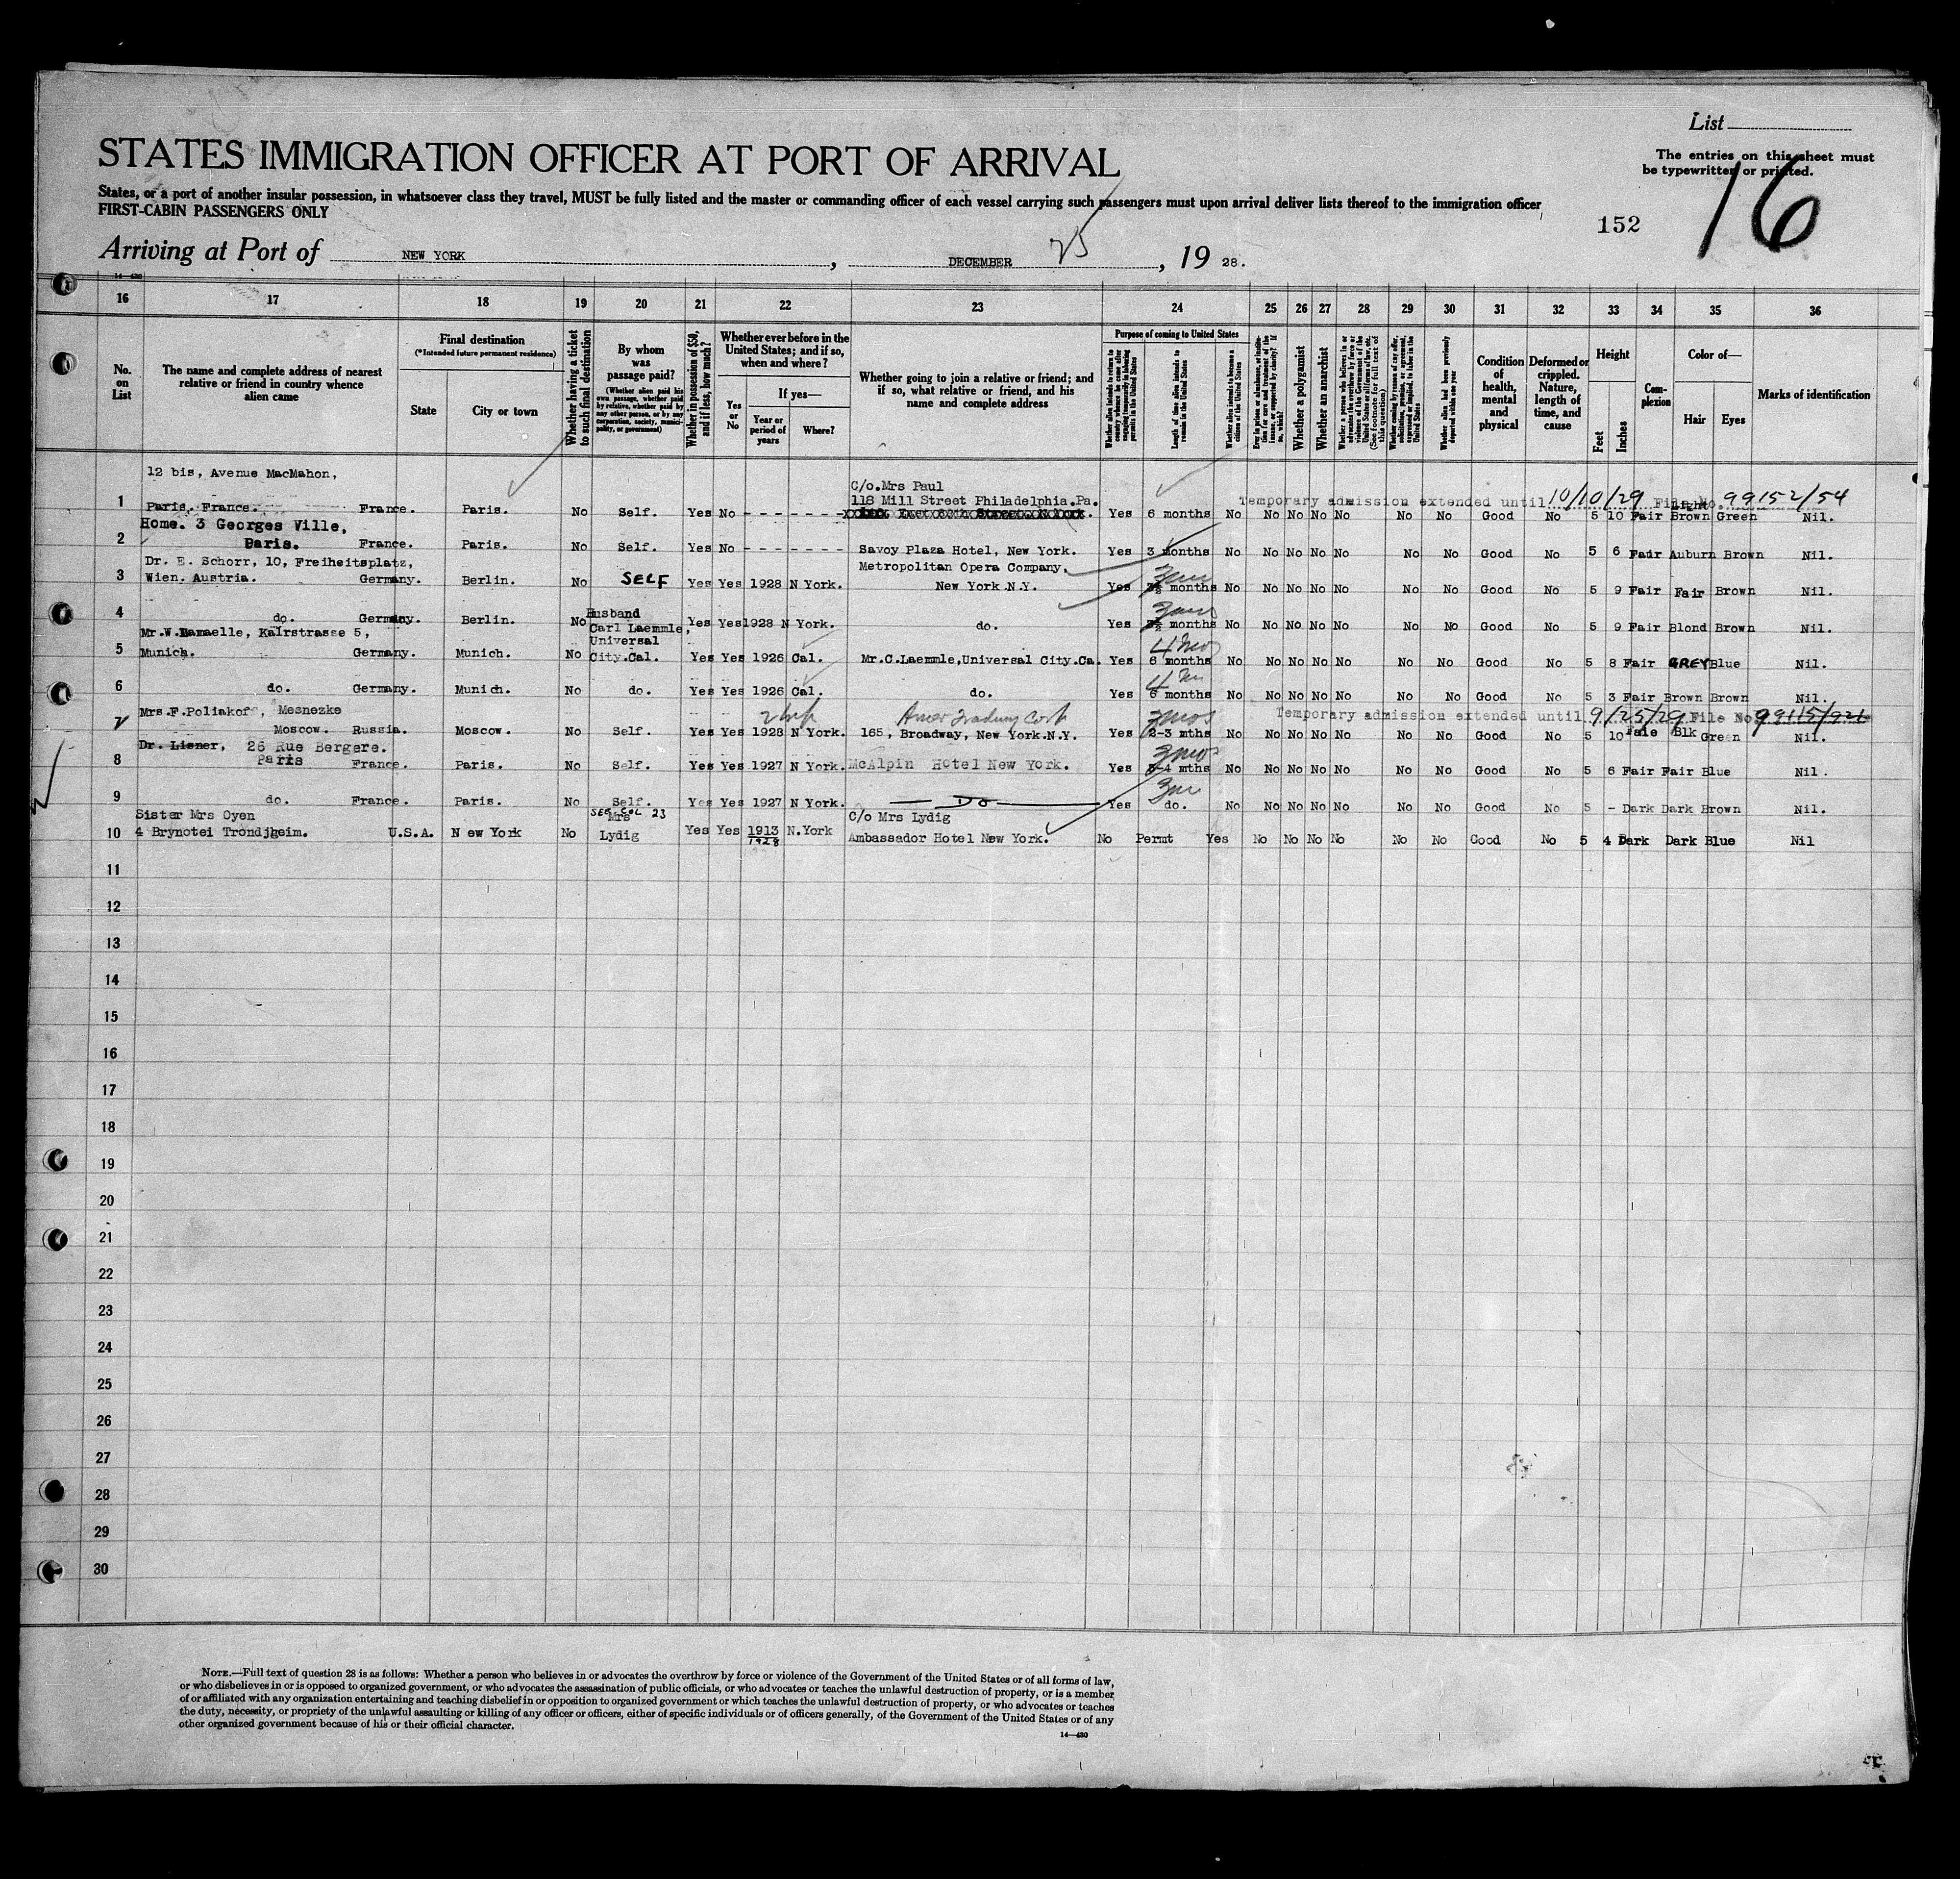 List
The entries on this sheet must
be typewritten or printed.
16
152
STATES IMMIGRATION OFFICER AT PORT OF ARRIVAL
States, or a port of another insular possession, in whatsoever class they travel, MUST be fully listed and the master or commanding officer of each vessel carrying such passengers must upon arrival deliver lists thereof to the immigration officer
FIRST-CABIN PASSENGERS ONLY
Arriving at Port of NEW YORK, DECEMBER 25, 19 28.
16 17 18 19 20 21 22 23 24 25 26 27 28 29 30 31 32 33 34 35 36
No. on List
The name and complete address of nearest relative or friend in country whence alien came
Final destination
(*Intended future permanent residence)
State
City or town
Whether having a ticket to such final destination
By whom was passage paid?
(Whether alien paid his own passage, whether paid by relative, whether paid by any other person, or by any corporation, society, municipality, or government)
Whether in possession of $50, and if less, how much?
Whether ever before in the United States; and if so, when and where?
Yes or No
If yes—
Year or period of years
Where?
Whether going to join a relative or friend; and if so, what relative or friend, and his name and complete address
Purpose of coming to United States
Whether alien intends to return to country whence he came after engaging temporarily in laboring pursuits in the United States
Length of time alien intends to remain in the United States
Whether alien intends to become a citizen of the United States
Whether a polygamist
Whether an anarchist
Condition of health, mental and physical
Deformed or crippled. Nature, length of time, and cause
Height
Feet
Inches
Complexion
Color of—
Hair
Eyes
Marks of identification
12 bis, Avenue MacMahon,
C/o.Mrs Paul
118 Mill Street Philadelphia.Pa.
Temporary admission extended until 10/10/29 File No. 99152/54
1 Paris. France. France. Paris. No Self. Yes No - - - - - - - Yes 6 months No No No No No No No Good No 5 10 Fair Light Brown Green Nil.
Home. 3 Georges Ville,
2 Paris. France. Paris. No Self. Yes No - - - - - - - Savoy Plaza Hotel, New York. Yes 3 months No No No No No No No Good No 5 6 Fair Auburn Brown Nil.
Dr. E. Schorr, 10, Freiheitsplatz,
Metropolitan Opera Company.
3 Wien. Austria. Germany. Berlin. No SELF Yes Yes 1928 N York. New York.N.Y. Yes months No No No No No No No Good No 5 9 Fair Fair Brown Nil.
4 do. Germany. Berlin. No Husband Yes Yes 1928 N York. do. Yes months No No No No No No No Good No 5 9 Fair Blond Brown Nil.
Mr.W. Kairstrasse 5,
Carl Laemmle,
Universal
5 Munich. Germany. Munich. No City.Cal. Yes Yes 1926 Cal. Mr.C.Laemmle,Universal City.Ca. Yes 4 mo 6 months No No No No No No No Good No 5 8 Fair GREY Blue Nil.
6 do. Germany. Munich. No do. Yes Yes 1926 Cal. do. Yes 4 m 6 months No No No No No No No Good No 5 3 Fair Brown Brown Nil.
Mrs.F.Poliakoff, Mesnezke
Amer Trading Corp
Temporary admission extended until 9/25/29 File No. 99115/921
7 Moscow. Russia. Moscow. No Self. Yes Yes 1928 N York. 165, Broadway, New York.N.Y. Yes 3 mos 2-3 mths No No No No No No No Good No 5 10 Blk Green Nil.
Dr. Lisner, 26 Rue Bergere.
8 Paris France. Paris. No Self. Yes Yes 1927 N York. McAlpin Hotel New York. Yes 3 mos 3-4 mths No No No No No No No Good No 5 6 Fair Fair Blue Nil.
9 do. France. Paris. No Self. Yes Yes 1927 N York. — Do — Yes 3m do. No No No No No No No Good No 5 - Dark Dark Brown Nil.
Sister Mrs Oyen
SEE COL 23
Mrs
C/o Mrs Lydig
10 4 Brynotei Trondjheim. U.S.A. New York No Lydig Yes Yes 1913 1928 N.York Ambassador Hotel New York. No Permt Yes No No No No No No Good No 5 4 Dark Dark Blue Nil
11
12
13
14
15
16
17
18
19
20
21
22
23
24
25
26
27
28
29
30
NOTE.—Full text of question 28 is as follows: Whether a person who believes in or advocates the overthrow by force or violence of the Government of the United States or of all forms of law,
or who disbelieves in or is opposed to organized government, or who advocates the assassination of public officials, or who advocates or teaches the unlawful destruction of property, or is a member
of or affiliated with any organization entertaining and teaching disbelief in or opposition to organized government or which teaches the unlawful destruction of property, or who advocates or teaches
the duty, necessity, or propriety of the unlawful assaulting or killing of any officer or officers, either of specific individuals or of officers generally, of the Government of the United States or of any
other organized government because of his or their official character.
14—430